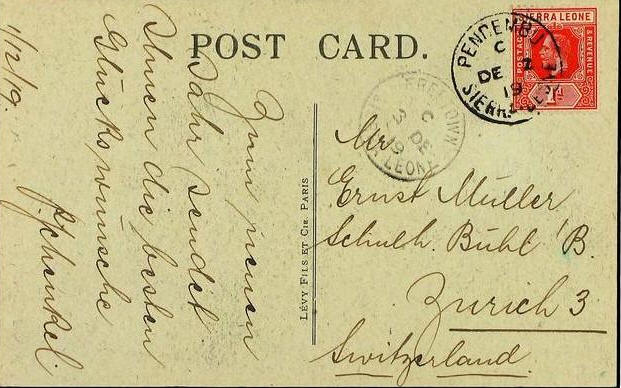 POST CARD.
1/12/19.
Zum neuen
Jahr sendet
Ihnen die besten
Glückswünsche
LÉVY FILS ET CIE PARIS
SIERRA LEONE
POSTAGE
& REVENUE
1d
PENDEMBU
C
DE 2
19
SIERRA LEONE
FREETOWN
C
3 DE
19
SIERRA LEONE
Mr
Ernst Müller
Schulh. Bühl B.
Zürich 3
Switzerland.